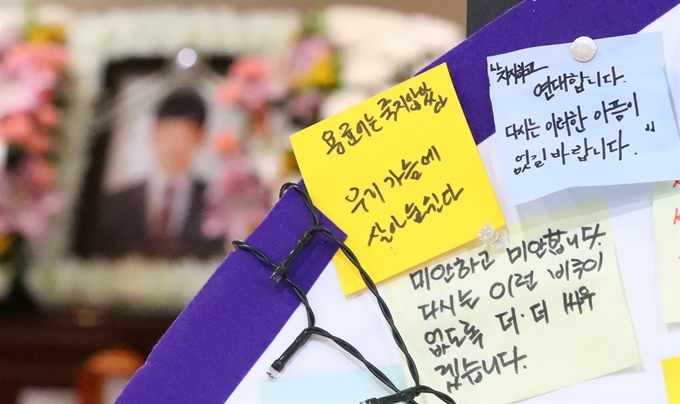 용균이는 죽지않았다
우리 가슴에
살아 숨쉰다
"지지하고
연대합니다.
다시는 이러한 아픔이
없길 바랍니다."
미안하고 미안합니다.
다시는 이런 비극이
없도록 더·더 싸우
겠습니다.